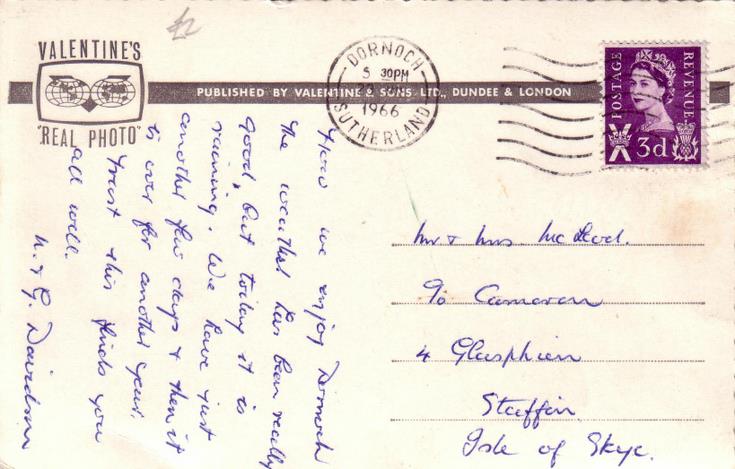 £2
VALENTINE'S
"REAL PHOTO"
PUBLISHED BY VALENTINE & SONS LTD., DUNDEE & LONDON
DORNOCH
5 30PM
1966
SUTHERLAND
POSTAGE
REVENUE
3d
How we enjoy Dornoch
the weather has been really
good, but today it is
raining. We have just
another few days & then it
is over for another year.
Trust this finds you
all well.
N. & G. Davidson
Mr & Mrs. McLeod.
c/o Cameron
4 Glasphien
Staffin
Isle of Skye.